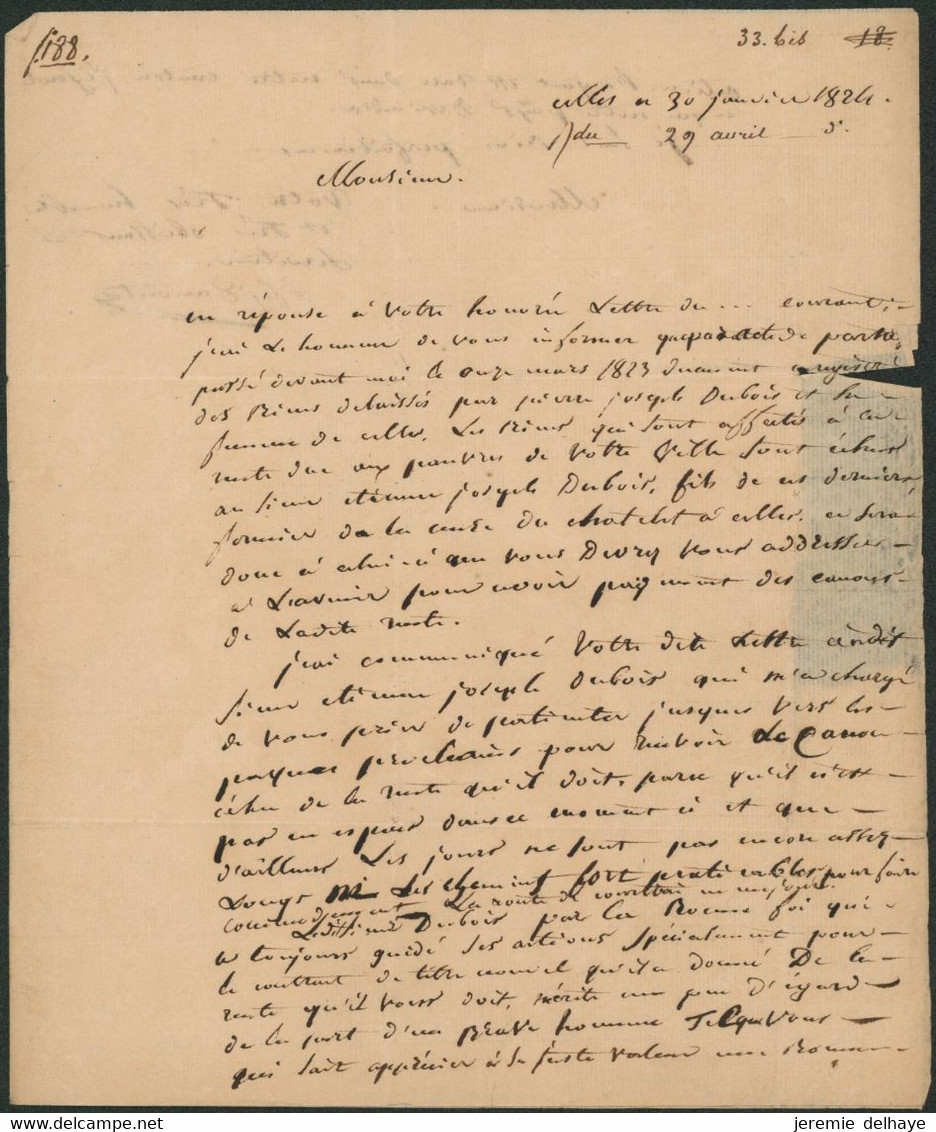 f. 188.
33. bis 18.
Celles ce 30 janvier 1824.
du 29 avril d°.
Monsieur.
en réponse à votre honorée Lettre du ... courant,
j'ai Le honneur de vous informer que par acte de partage
passé devant moi le onze mars 1823 duement enregistré
des Biens delaissés par pierre joseph Dubois et sa
femme de Celles, Les Biens qui sont affectés à une
rente due aux pauvres de Votre Ville sont échus
au sieur etienne joseph Dubois, fils de ces derniers
fermier de la cense du chatelet à Celles. ce sera
donc à celui-ci que vous Devrez vous addresser
à L'avenir pour avoir payment des canons
de Ladite rente.
j'ai communiqué Votre dite Lettre audit
sieur etienne joseph Dubois qui m'a chargé
de vous prier de patienter jusques vers les
paques prochains pour recevoir Le Canon
échu de la rente qu'il doit, parce qu'il n'est
pas en espèces dans ce moment ci et que
d'ailleurs Les jours ne sont pas encore assez
Longs ni Les chemins fort praticables pour faire
commodement La route de
Ledit sieur Dubois par la Bonne foi qui
a toujours guidé ses actions spécialement pour
le contrat de titre nouvel qu'il a donné De la
rente qu'il vous doit, mérite un peu d'égard
de la part d'un Brave homme Tel que Vous
qui sait apprécier à sa juste valeur une Bonne
jeremie delhaye